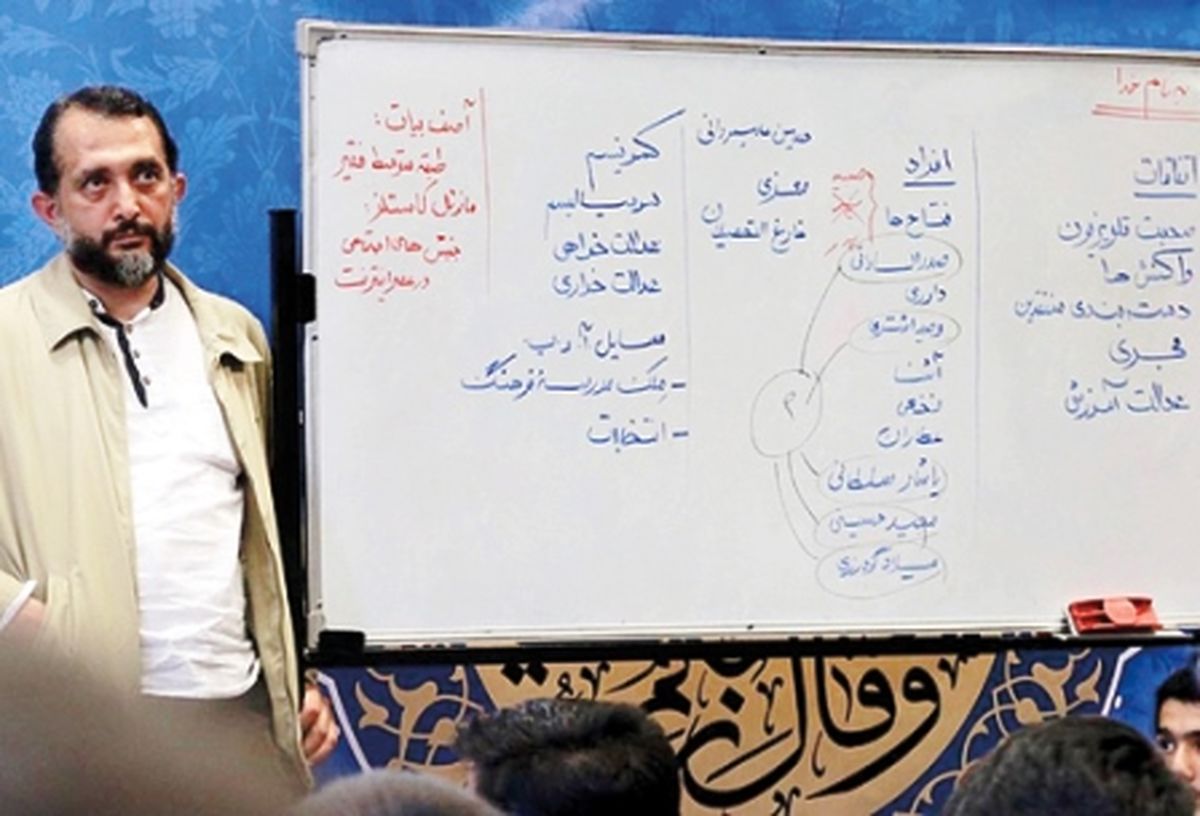 به نام خدا
اتفاقات
صحبت تلویزیون
واکنش ها
دسته بندی منتقدین
مجری
عدالت آموزش
افراد
فتاح ها
داوری
آشنا
نخعی
عطاران
یاشار سلطانی
مجید حسینی
میلاد گودرزی
؟
معزی
فارغ التحصیلان
کمونیسم
سوسیالیسم
عدالت خواهی
عدالت خواری
مسایل آ. و. پ
- ملک مدرسه فرهنگ
- انتخابات
آصف بیات:
طبقه متوسط فقیر
مانوئل کاستلز:
جنبش های اجتماعی
در عصر اینترنت
وقال